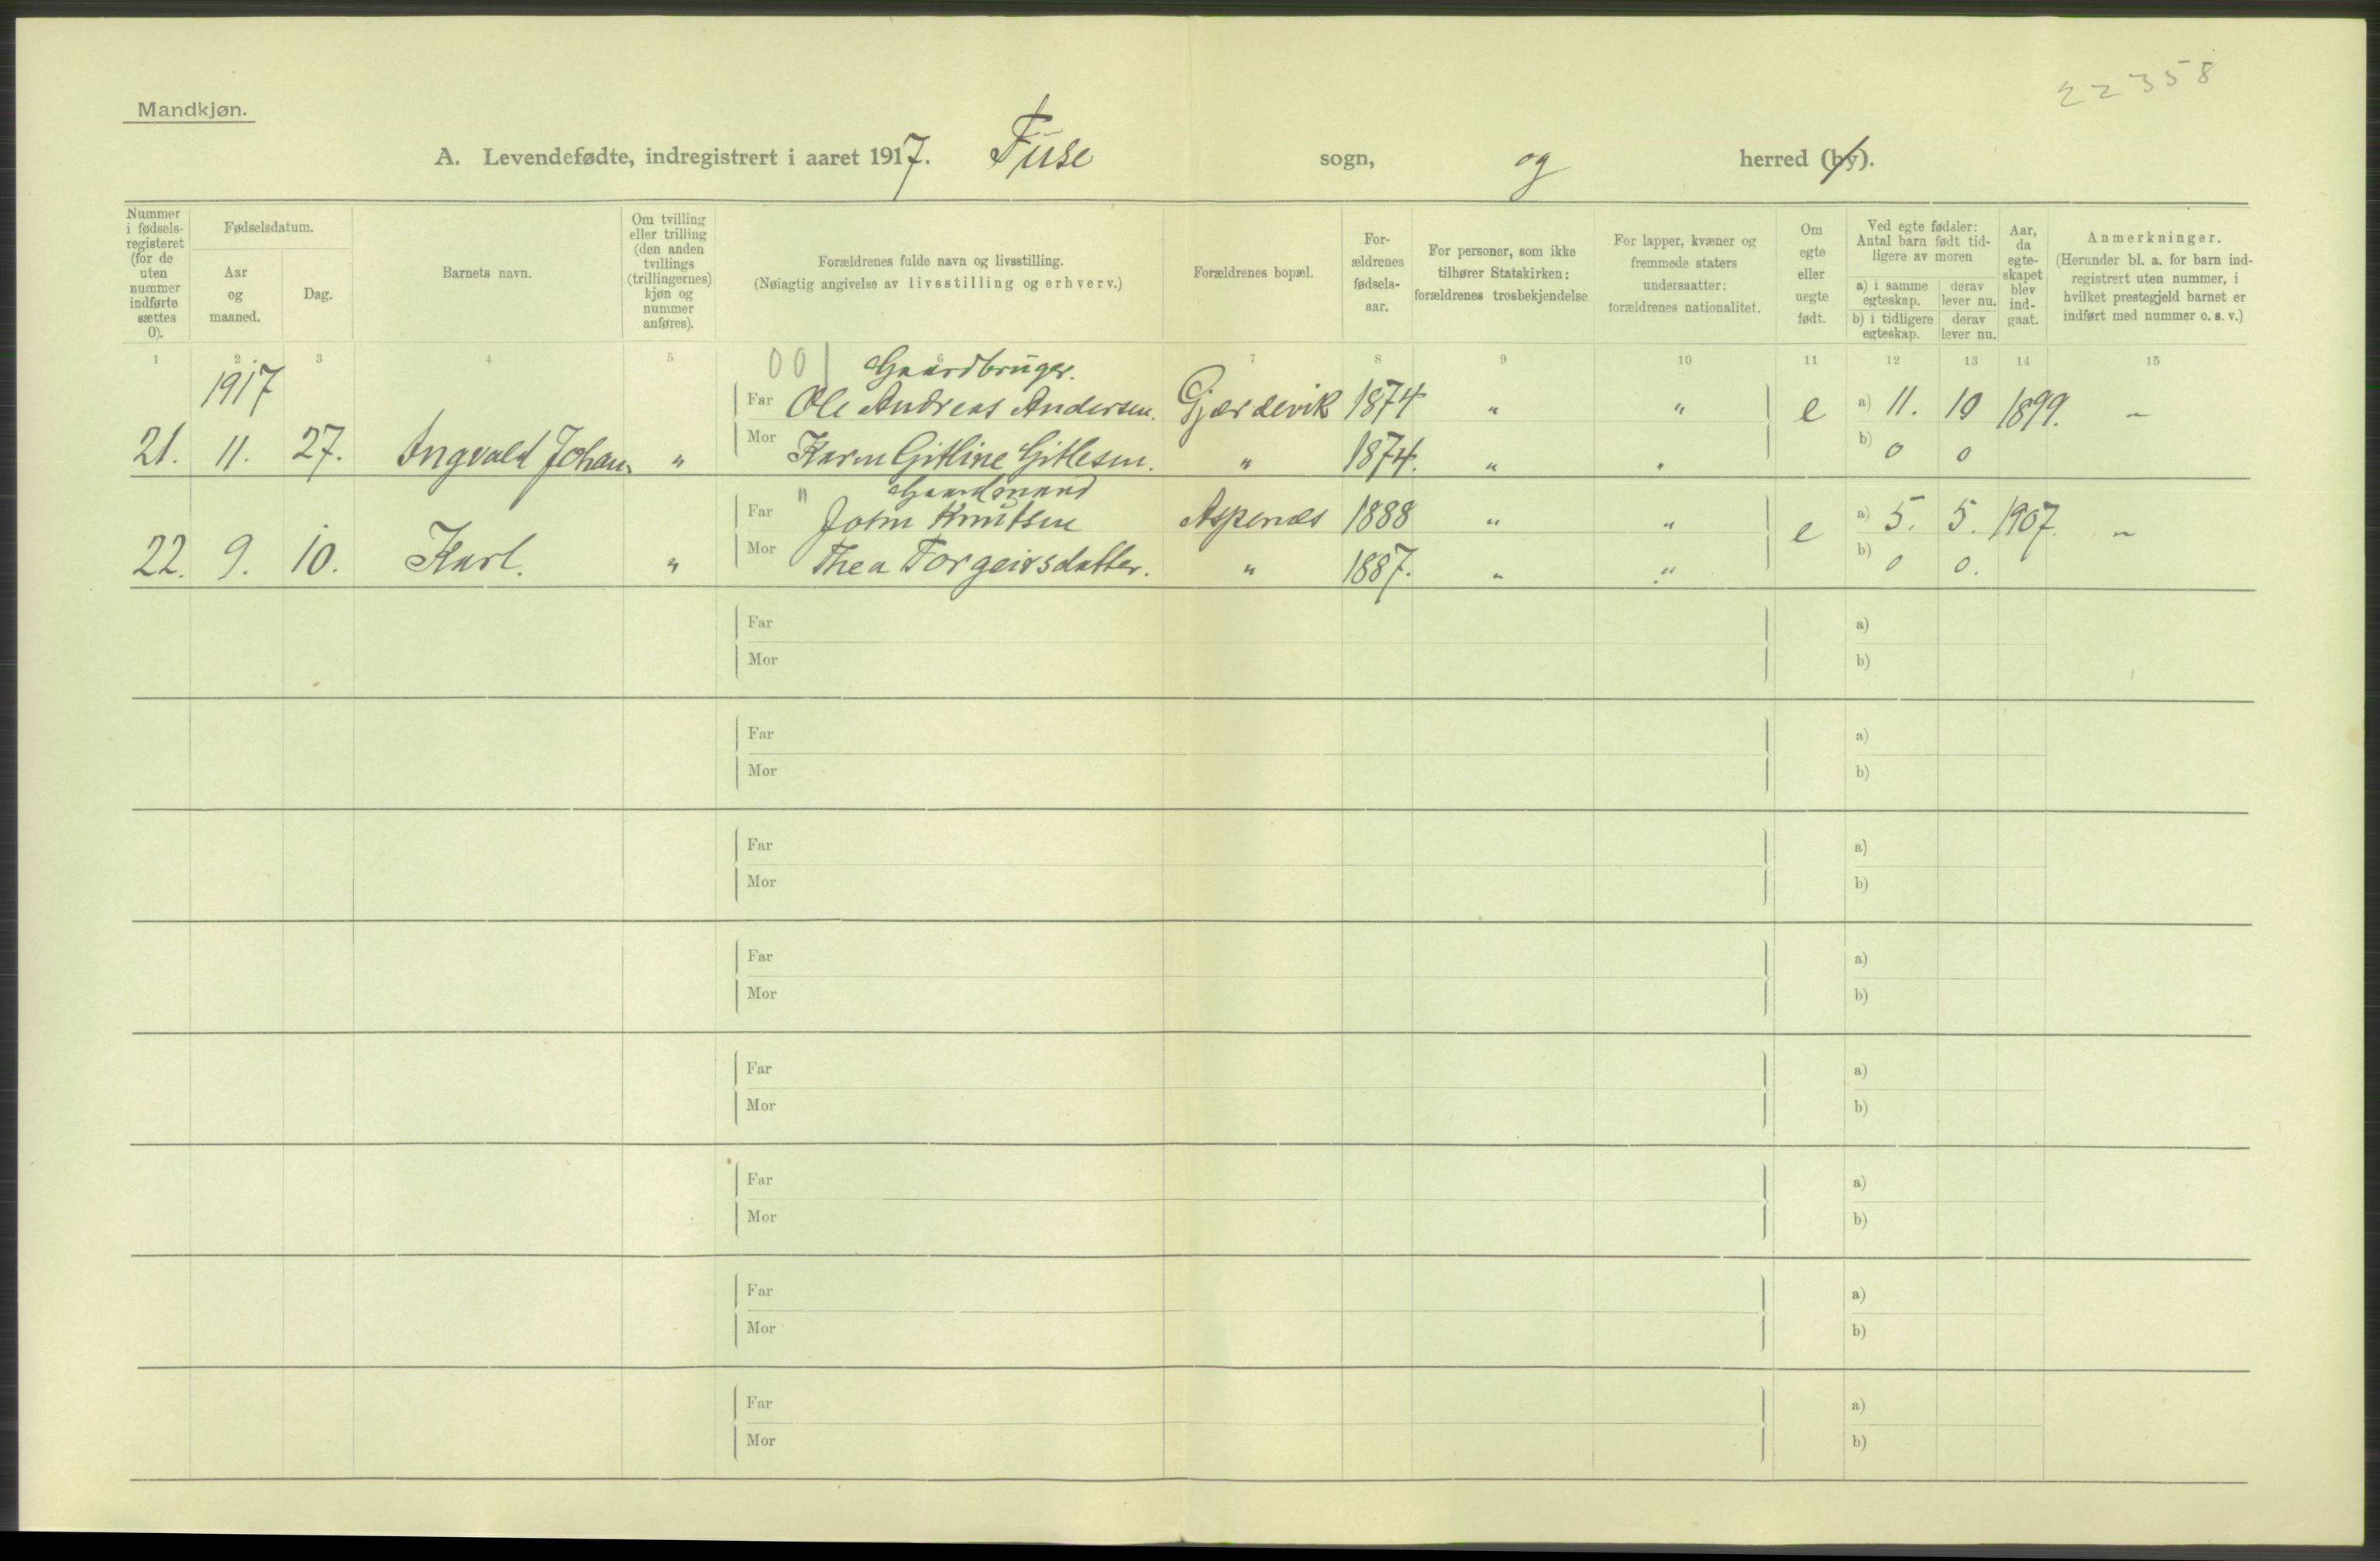 22358
Mandkjøn.
A. Levendefødte, indregistrert i aaret 1917. Fuse sogn, og herred (by).
Nummer i fødselsregisteret (for de uten nummer indførte sættes 0).
Fødselsdatum.
Aar og maaned.
Dag.
Barnets navn.
Om tvilling eller trilling (den anden tvillings (trillingernes) kjøn og nummer anføres).
Forældrenes fulde navn og livsstilling.
(Nøiagtig angivelse av livsstilling og erhverv.)
Forældrenes bopæl.
Forældrenes fødselsaar.
For personer, som ikke tilhører Statskirken: forældrenes trosbekjendelse.
For lapper, kvæner og fremmede staters undersaatter: forældrenes nationalitet.
Om egte eller uegte født.
Ved egte fødsler: Antal barn født tidligere av moren
a) i samme egteskap.
derav lever nu.
b) i tidligere egteskap.
derav lever nu.
Aar, da egteskapet blev indgaat.
Anmerkninger.
(Herunder bl. a. for barn indregistrert uten nummer, i hvilket prestegjeld barnet er indført med nummer o. s. v.)
1 2 3 4 5 6 7 8 9 10 11 12 13 14 15
1917
001 Gaardbruger.
Far Ole Andreas Andersen. Gjærdevik 1874 " " e a) 11. 10 1899. –
21. 11. 27. Ingvald Johan. " Mor Karen Gitline Gitlesen. " 1874. " " b) 0 0
" Gaardmand
Far John Knutsen Aspenes 1888 " " e a) 5. 5. 1907. –
22. 9. 10. Karl. " Mor Thea Torgeirsdatter. " 1887. " " b) 0 0.
Far a)
Mor b)
Far a)
Mor b)
Far a)
Mor b)
Far a)
Mor b)
Far a)
Mor b)
Far a)
Mor b)
Far a)
Mor b)
Far a)
Mor b)